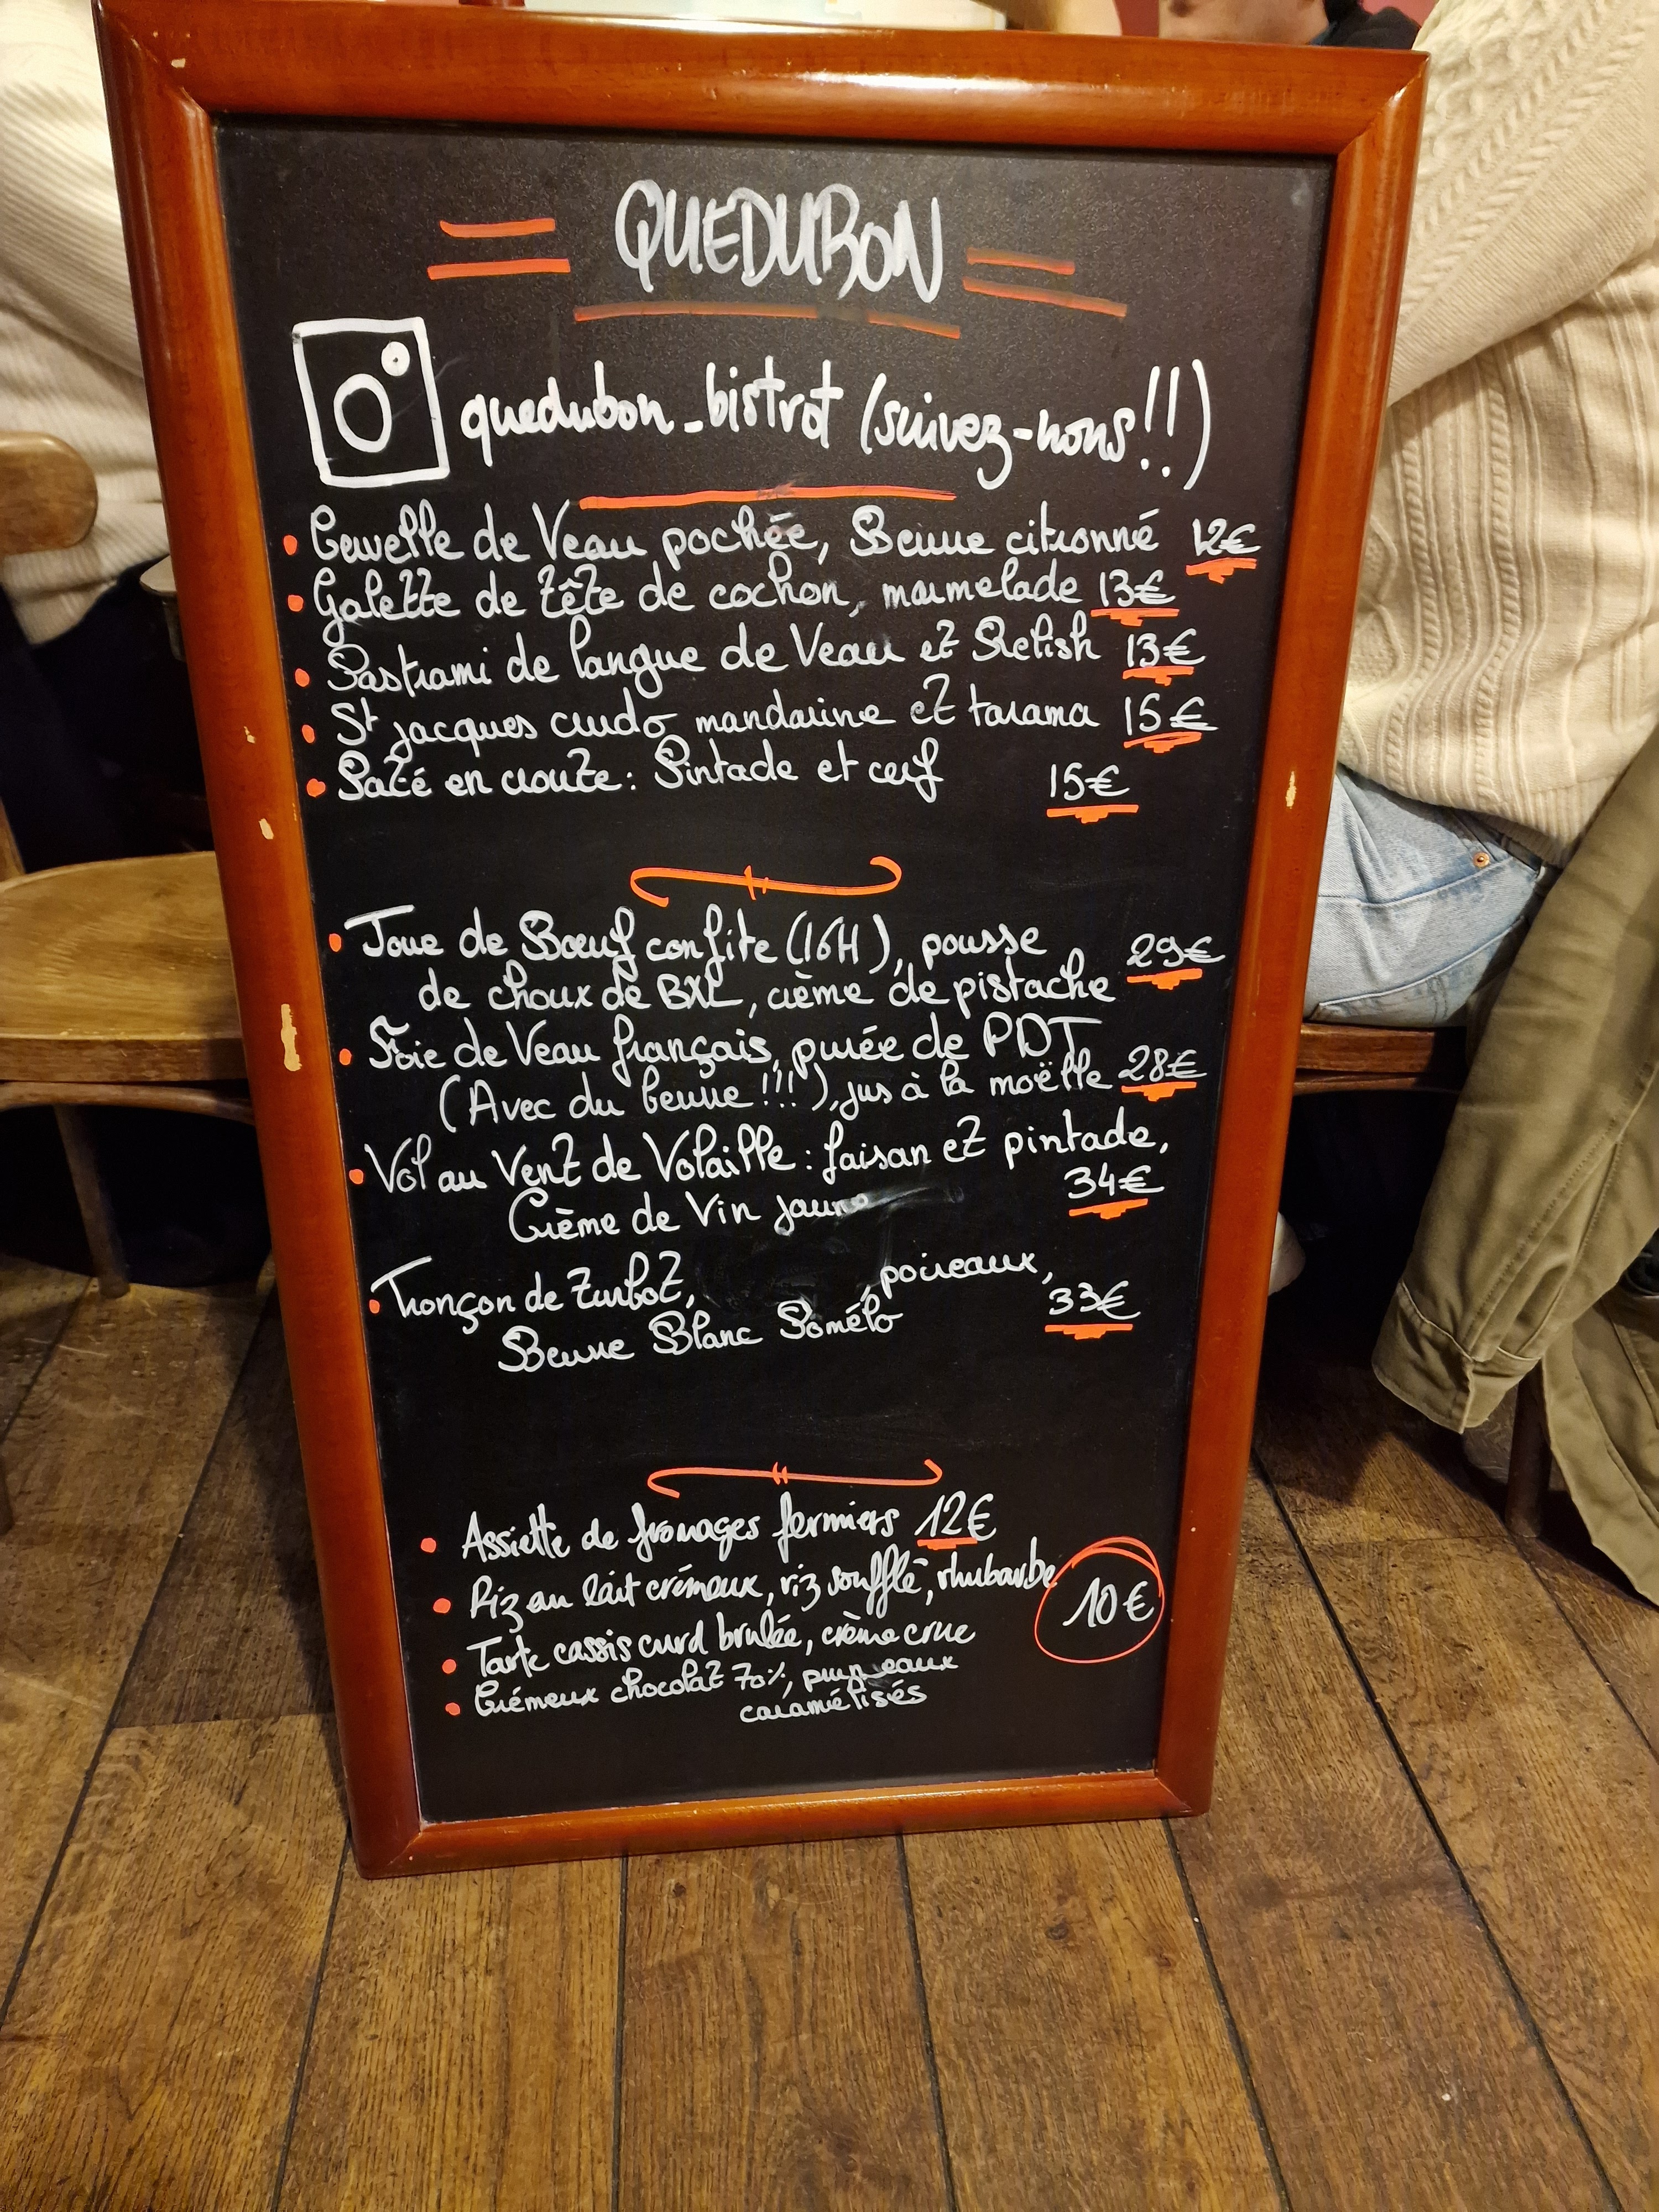 QUEDUBON
quedubon_bistrot (suivez-nous!!)
Cervelle de Veau pochée, Beurre citronné 12€
Galette de tête de cochon, marmelade 13€
Pastrami de langue de Veau et Relish 13€
St jacques crudo mandarine et tarama 15€
Pâté en croute : Pintade et cerf 15€
Joue de Bœuf confite (16H), pousse
de choux de BXL, crème de pistache 29€
Foie de Veau français, purée de PDT
(Avec du beurre !!!), jus à la moëlle 28€
Vol au Vent de Volaille : faisan et pintade,
Crème de Vin jaune 34€
Tronçon de turbot, poireaux,
Beurre Blanc Pomélo 33€
Assiette de fromages fermiers 12€
Riz au lait crémeux, riz soufflé, rhubarbe
Tarte cassis curd brulée, crème crue 10€
Crémeux chocolat 70%, pruneaux
caramélisés